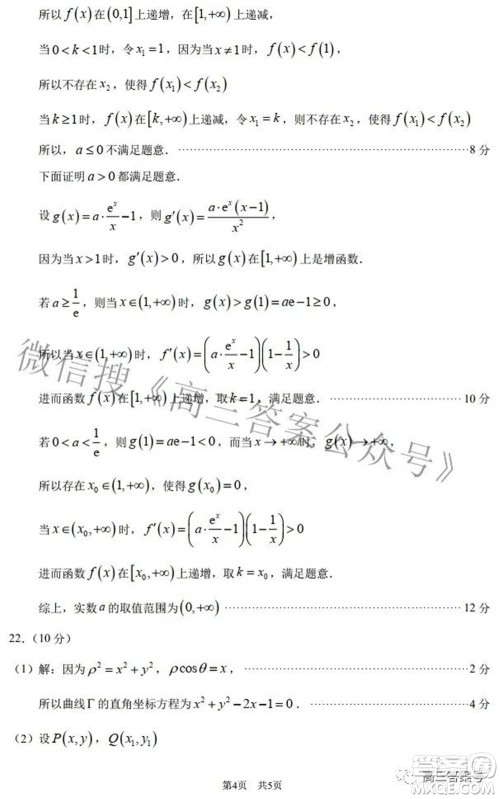 所以 f(x) 在 (0,1] 上递增，在 [1,+∞) 上递减，
当 0<k<1 时，令 x₁=1，因为当 x≠1 时，f(x)<f(1)，
所以不存在 x₂，使得 f(x₁)<f(x₂)
当 k≥1 时，f(x) 在 [k,+∞) 上递减，令 x₁=k，则不存在 x₂，使得 f(x₁)<f(x₂)
所以，a≤0 不满足题意．⋯⋯8 分
下面证明 a>0 都满足题意．
设 g(x)=a·eˣ/x−1，则 g′(x)=a·eˣ(x−1)/x²，
因为当 x>1 时，g′(x)>0，所以 g(x) 在 [1,+∞) 上是增函数．
若 a≥1/e，则当 x∈(1,+∞) 时，g(x)>g(1)=ae−1≥0，
所以当 x∈(1,+∞) 时，f′(x)=(a·eˣ/x−1)(1−1/x)>0
进而函数 f(x) 在 [1,+∞) 上递增，取 k=1，满足题意．⋯⋯10 分
若 0<a<1/e，则 g(1)=ae−1<0，而当 x→+∞ 时，g(x)→+∞，
所以存在 x₀∈(1,+∞)，使得 g(x₀)=0，
当 x∈(x₀,+∞) 时，f′(x)=(a·eˣ/x−1)(1−1/x)>0
进而函数 f(x) 在 [x₀,+∞) 上递增，取 k=x₀，满足题意．
综上，实数 a 的取值范围为 (0,+∞)⋯⋯12 分
22．(10 分)
(1) 解：因为 ρ²=x²+y²，ρcosθ=x，⋯⋯2 分
所以曲线 Γ 的直角坐标方程为 x²+y²−2x−1=0．⋯⋯4 分
(2) 设 P(x,y)，Q(x₁,y₁)
第4页 共5页
微信搜《高三答案公众号》
高三答案号
MXQE.COM